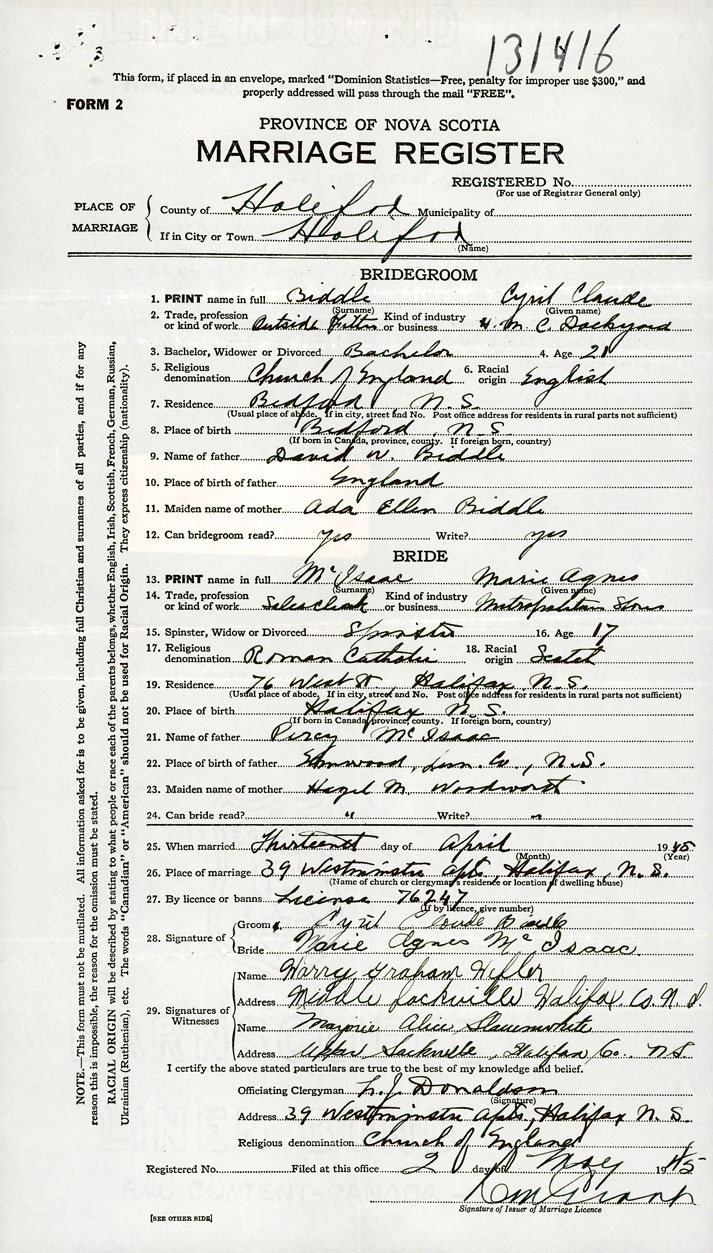 131416
This form, if placed in an envelope, marked “Dominion Statistics—Free, penalty for improper use $300,” and
properly addressed will pass through the mail “FREE”.
FORM 2
PROVINCE OF NOVA SCOTIA
MARRIAGE REGISTER
REGISTERED No.
(For use of Registrar General only)
PLACE OF MARRIAGE
County of Halifax Municipality of
If in City or Town Halifax
(Name)
BRIDEGROOM
1. PRINT name in full Biddle Cyril Claude
(Surname) (Given name)
2. Trade, profession or kind of work Outside Fitter Kind of industry or business H. M. C. Dockyard
3. Bachelor, Widower or Divorced Bachelor 4. Age 21
5. Religious denomination Church of England 6. Racial origin English
7. Residence Bedford, N.S.
(Usual place of abode. If in city, street and No. Post office address for residents in rural parts not sufficient)
8. Place of birth Bedford, N.S.
(If born in Canada, province, county. If foreign born, country)
9. Name of father David W. Biddle
10. Place of birth of father England
11. Maiden name of mother Ada Ellen Biddle
12. Can bridegroom read? yes Write? yes
BRIDE
13. PRINT name in full McIsaac Marie Agnes
(Surname) (Given name)
14. Trade, profession or kind of work Sales Clerk Kind of industry or business Metropolitan Stores
15. Spinster, Widow or Divorced Spinster 16. Age 17
17. Religious denomination Roman Catholic 18. Racial origin Scotch
19. Residence 76 West St, Halifax N.S.
(Usual place of abode, If in city, street and No. Post office address for residents in rural parts not sufficient)
20. Place of birth Halifax N.S.
(If born in Canada, province, county. If foreign born, country)
21. Name of father Percy McIsaac
22. Place of birth of father Elmwood, Lun. Co., N.S.
23. Maiden name of mother Hazel M. Woodworth
24. Can bride read? " Write? "
25. When married Thirteenth day of April 1945
(Month) (Year)
26. Place of marriage 39 Westminster Apts, Halifax, N.S.
(Name of church or clergyman's residence or location of dwelling house)
27. By licence or banns License 76247
(If by licence, give number)
28. Signature of
Groom Cyril Claude Biddle
Bride Marie Agnes McIsaac
29. Signatures of Witnesses
Name Harry Graham Hefler
Address Middle Sackville Halifax Co. N.S.
Name Marjorie Alice Slauenwhite
Address Upper Sackville, Halifax Co. N.S.
I certify the above stated particulars are true to the best of my knowledge and belief.
Officiating Clergyman L. J. Donaldson
(Signature)
Address 39 Westminster Apts, Halifax N.S.
Religious denomination Church of England
Registered No. Filed at this office 2 day of May 1945
Signature of Issuer of Marriage Licence
[SEE OTHER SIDE]
NOTE.—This form must not be mutilated. All information asked for is to be given, including full Christian and surnames of all parties, and if for any
reason this is impossible, the reason for the omission must be stated.
RACIAL ORIGIN will be described by stating to what people or race each of the parents belongs, whether English, Irish, Scottish, French, German, Russian,
Ukrainian (Ruthenian), etc. The words “Canadian” or “American” should not be used for Racial Origin. They express citizenship (nationality).